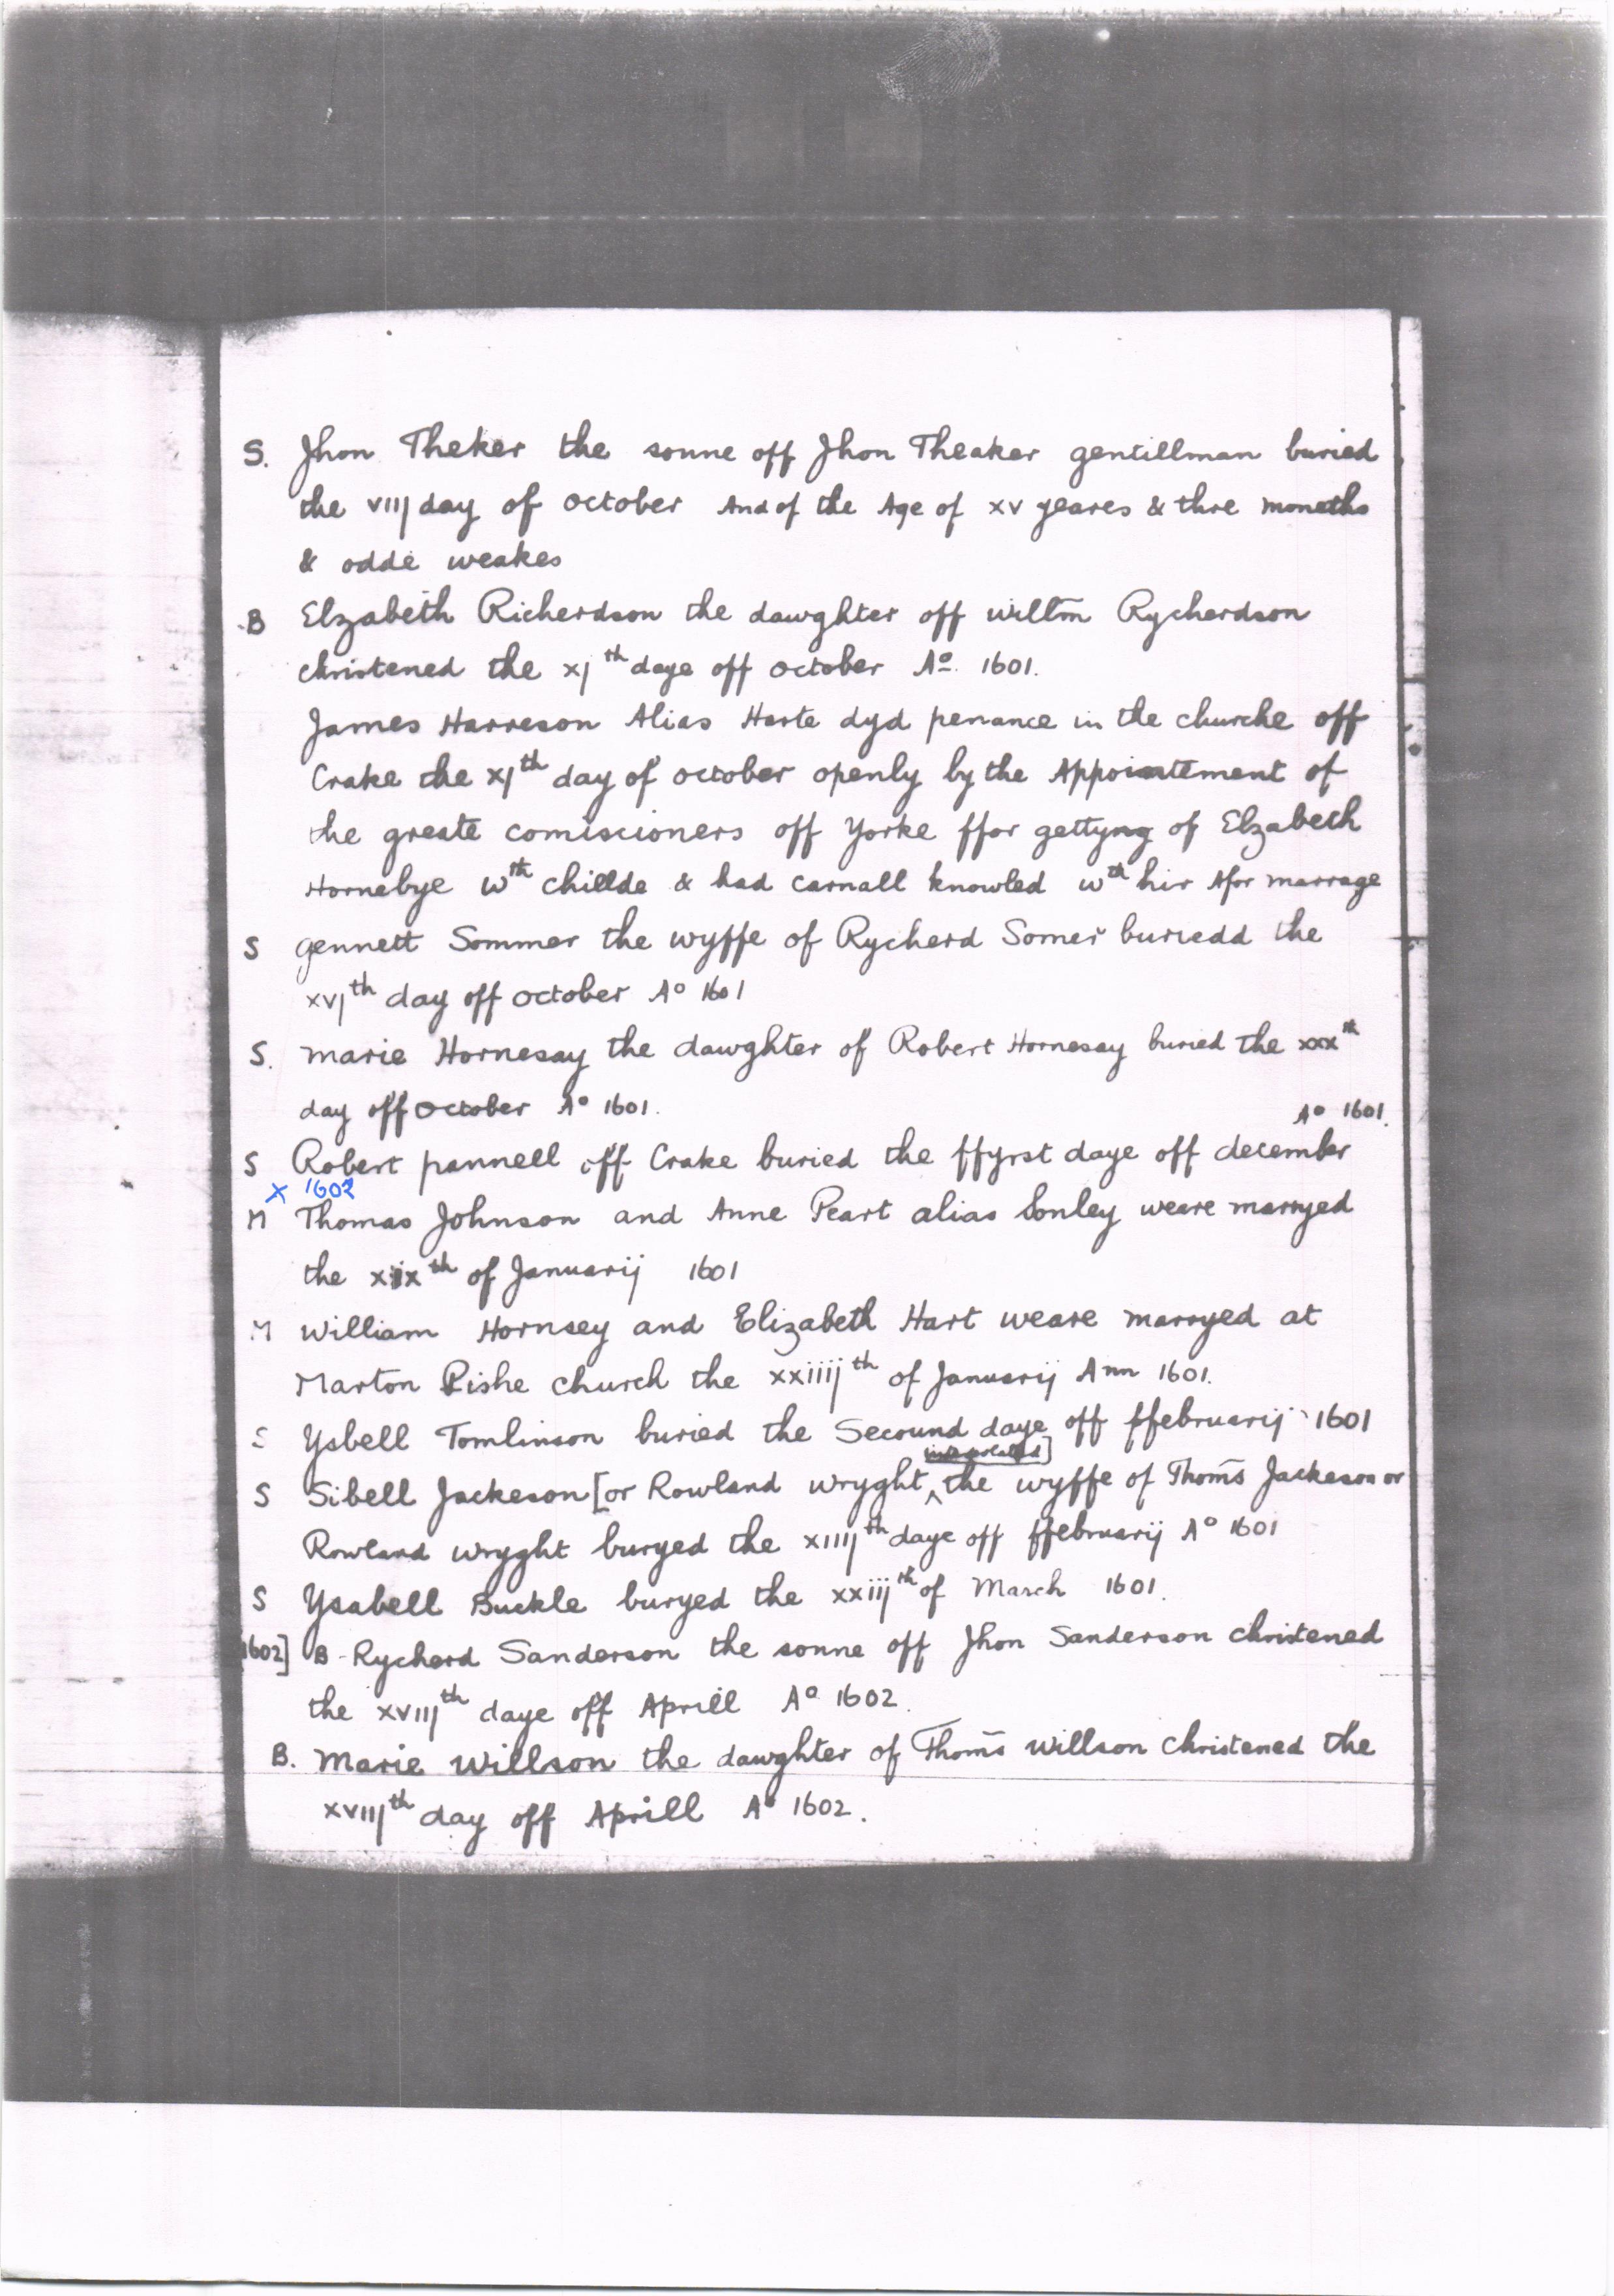 S. Jhon Theker the sonne off Jhon Theaker gentillman buried
the VIIJ day of october And of the Age of xv yeares & thre moneths
& odde weakes
B Elzabeth Richerdson the dawghter off willm̄ Rychardson
christened the xjth daye off october Aº 1601.
James Harreson Alias Harte dyd penance in the churche off
Crake the xjth day of october openly by the Appointement of
the greate comiscioners off Yorke ffor gettyng of Elzabeth
Hornebye wth chillde & had carnall knowled wth hir Afor marrage
S gennett Sommer the wyffe of Rycherd Somer buriedd the
xvjth day off october Aº 1601
S. marie Hornesay the dawghter of Robert Hornesay buried the xxxth
day off october Aº 1601.
Aº 1601.
S Robert pannell off Crake buried the ffyrst daye off december
x 1602
M Thomas Johnson and Anne Peart alias Sonley weare marryed
the xixth of Januarij 1601
M William Hornsey and Elizabeth Hart weare marryed at
Marton Pishe church the xxiiijth of Januarij Ann 1601.
S Ysbell Tomlinson buried the Secound daye off ffebruarij 1601
S Sibell Jackeson [or Rowland wryght, ^ the wyffe of Thom̄s Jackeson or
Rowland wryght buryed the xiiijth daye off ffebruarij Aº 1601
S Ysabell Buckle buryed the xxiijth of March 1601.
1602] B Rycherd Sanderson the sonne off Jhon Sanderson christened
the xviijth daye off Aprill Aº 1602.
B. Marie Willson the dawghter of Thom̄s willson christened the
xviijth day off Aprill Aº 1602.